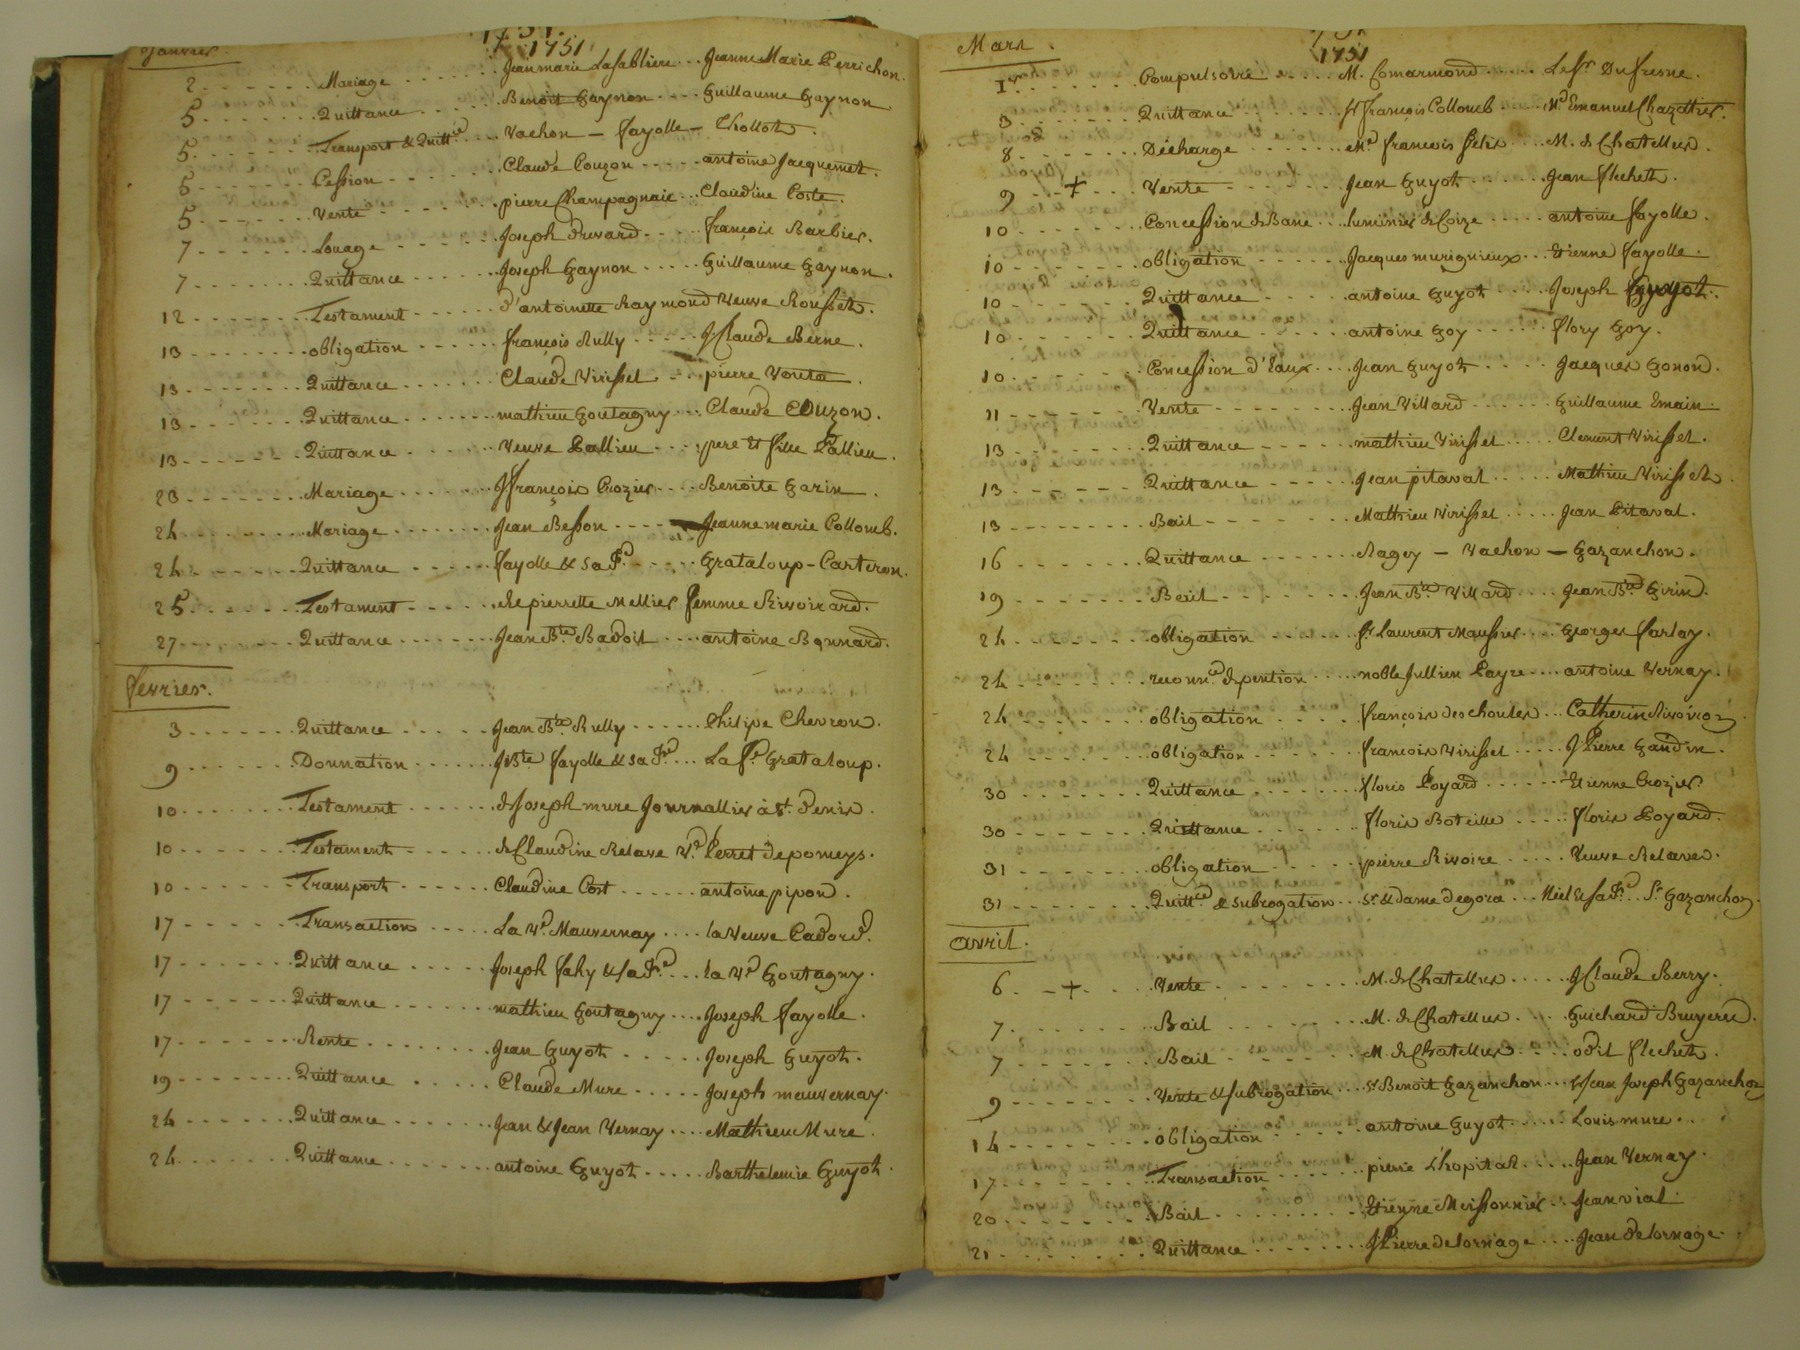 1751
Janvier.
2 Mariage Jean marie Lasabliere Jeanne Marie Perrichon.
5 Quittance Benoit Gaynon Guillaume Gaynon
5 Transport & Quitt.ce Vachon - fayolle - Chollot.
5 Cession Claude Couzon antoine Jacquemet.
5 Vente pierre Champagnat Claudine Coste.
7 Louage Joseph françois Barbier.
7 Quittance Joseph Gaynon Guillaume Gaynon.
12 Testament d'antoinette Raymond Veuve Rousset.
13 obligation françois Rully J Claude Berne.
13 Quittance Claude Virisset pierre
13 Quittance mathieu Goutagny Claude Couzon.
13 Quittance Veuve Pallieu pere et fille Pallieu.
23 Mariage J françois Crozier Benoite Garin.
24 Mariage Jean Besson Jeanne marie Collomb.
24 Quittance fayolle & sa Grataloup - Carteron.
25 Testament de pierrette Mellier femme Rivoirard.
27 Quittance Jean B.te Badoil antoine Bonnard.
fevrier.
3 Quittance Jean B.te Rully Philipe Chevron.
9 Donnation J Bte fayolle & sa La Grataloup.
10 Testament de Joseph mure Journallier à St. Denis.
10 Testament de Claudine Relave V.e Perret de pomeys.
10 Transport Claudine Cost antoine pipon.
17 Transaction La V.e Mauvernay la Veuve Cadord.
17 Quittance Joseph fahy & sa la V.e Goutagny.
17 Quittance mathieu Goutagny Joseph fayolle.
17 Rente Jean Guyot Joseph Guyot.
19 Quittance Claude Mure Joseph mauvernay.
24 Quittance Jean & Jean Vernay Mathieu Mure.
24 Quittance antoine Guyot Barthelemie Guyot.
1751
Mars.
1er Compulsoire M. Comarmond Le Sr Dufresne.
3 Quittance Sr françois Collomb Md Emanuel Chazottier.
8 Décharge Me francois M. de Chatellus.
9 + Vente Jean Guyot Jean flechet.
10 Concession de Banc luminier de Coize antoine fayolle.
10 obligation Jacques murigneux Etienne fayolle.
10 Quittance antoine Guyot Joseph Guyot.
10 Quittance antoine Goy flory Goy.
10 Concession d'Eaux Jean Guyot Jacques Gonon.
11 Vente Jean Villard Guillaume Emain.
13 Quittance mathieu Virisset Clement Virisset.
13 Quittance Jean pitaval Mathieu Virisset.
13 Bail Mathieu Virisset Jean Pitaval.
16 Quittance Ragey - Vachon - Gazanchon.
19 Bail Jean B.te Villard Jean B.te Girin.
24 obligation Sr Laurent Maussier Georges farlay.
24 reconn.ce de pention noble Jullien Payre antoine Vernay.
24 obligation françois deschoules Catherin
24 obligation françois Virisset J Pierre Gaudin.
30 Quittance floris Poyard Etienne Crozier.
30 Quittance floris Boteille floris Poyard.
31 obligation pierre Rivoire Veuve Relave.
31 Quitt.ce & subrogation Sr. & dame Miel & sa Sr Gazanchon.
avril.
6 + Vente M. de Chatellus J Claude Berry.
7 Bail M. de Chatellus Guichard Bruyere.
7 Bail M. de Chatellus odil flechet.
9 Vente & subrogation Sr Benoit Gazanchon Sr Jean Joseph Gazanchon
14 obligation antoine Guyot Louis mure.
17 Transaction pierre Lhopital Jean Vernay.
20 Bail Etienne Meissonnier Jean vial.
21 Quittance J Pierre delornage Jean delornage.